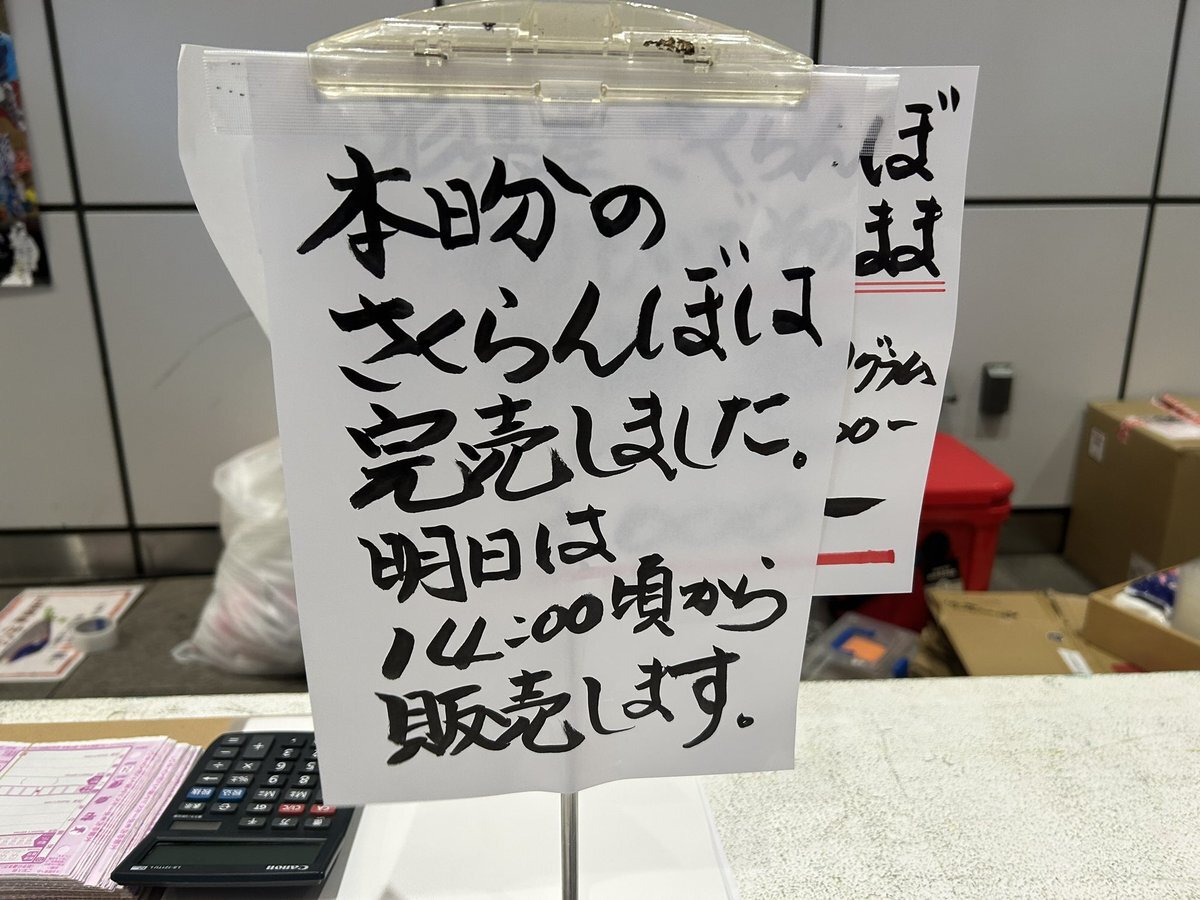 本日分の
さくらんぼは
完売しました。
明日は
14:00頃から
販売します。
んぼ
まま
グラム
00-
Canon